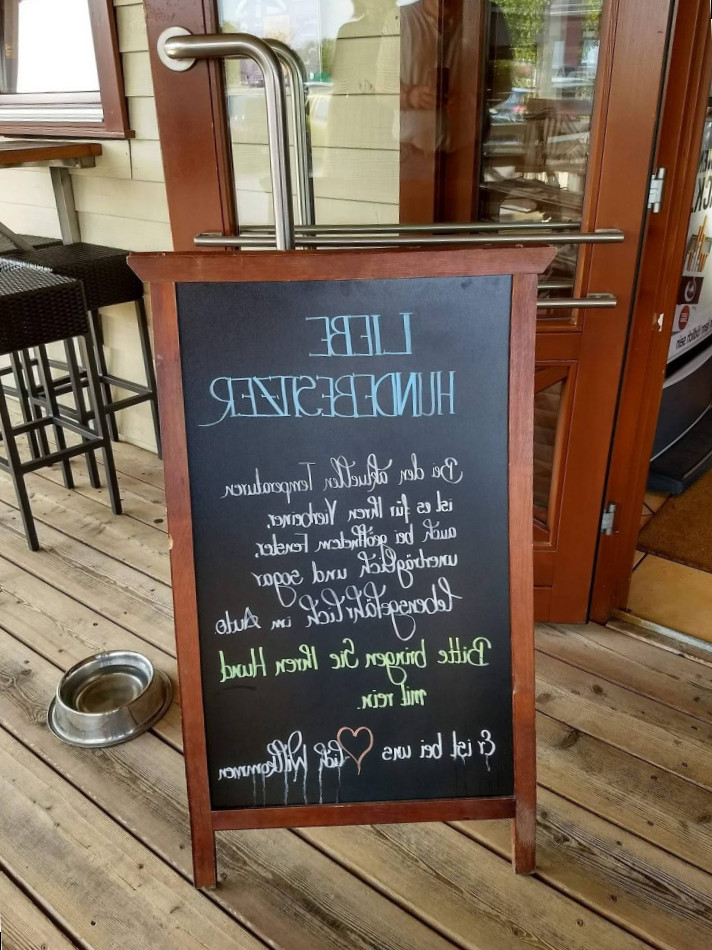 LIEBE
HUNDEBESITZER
Bei den aktuellen Temperaturen
ist es für Ihren Vierbeiner,
auch bei geöffnetem Fenster,
unerträglich und sogar
lebensgefährlich im Auto
Bitte bringen Sie Ihren Hund
mit rein.
Er ist bei uns ♡lich Willkommen